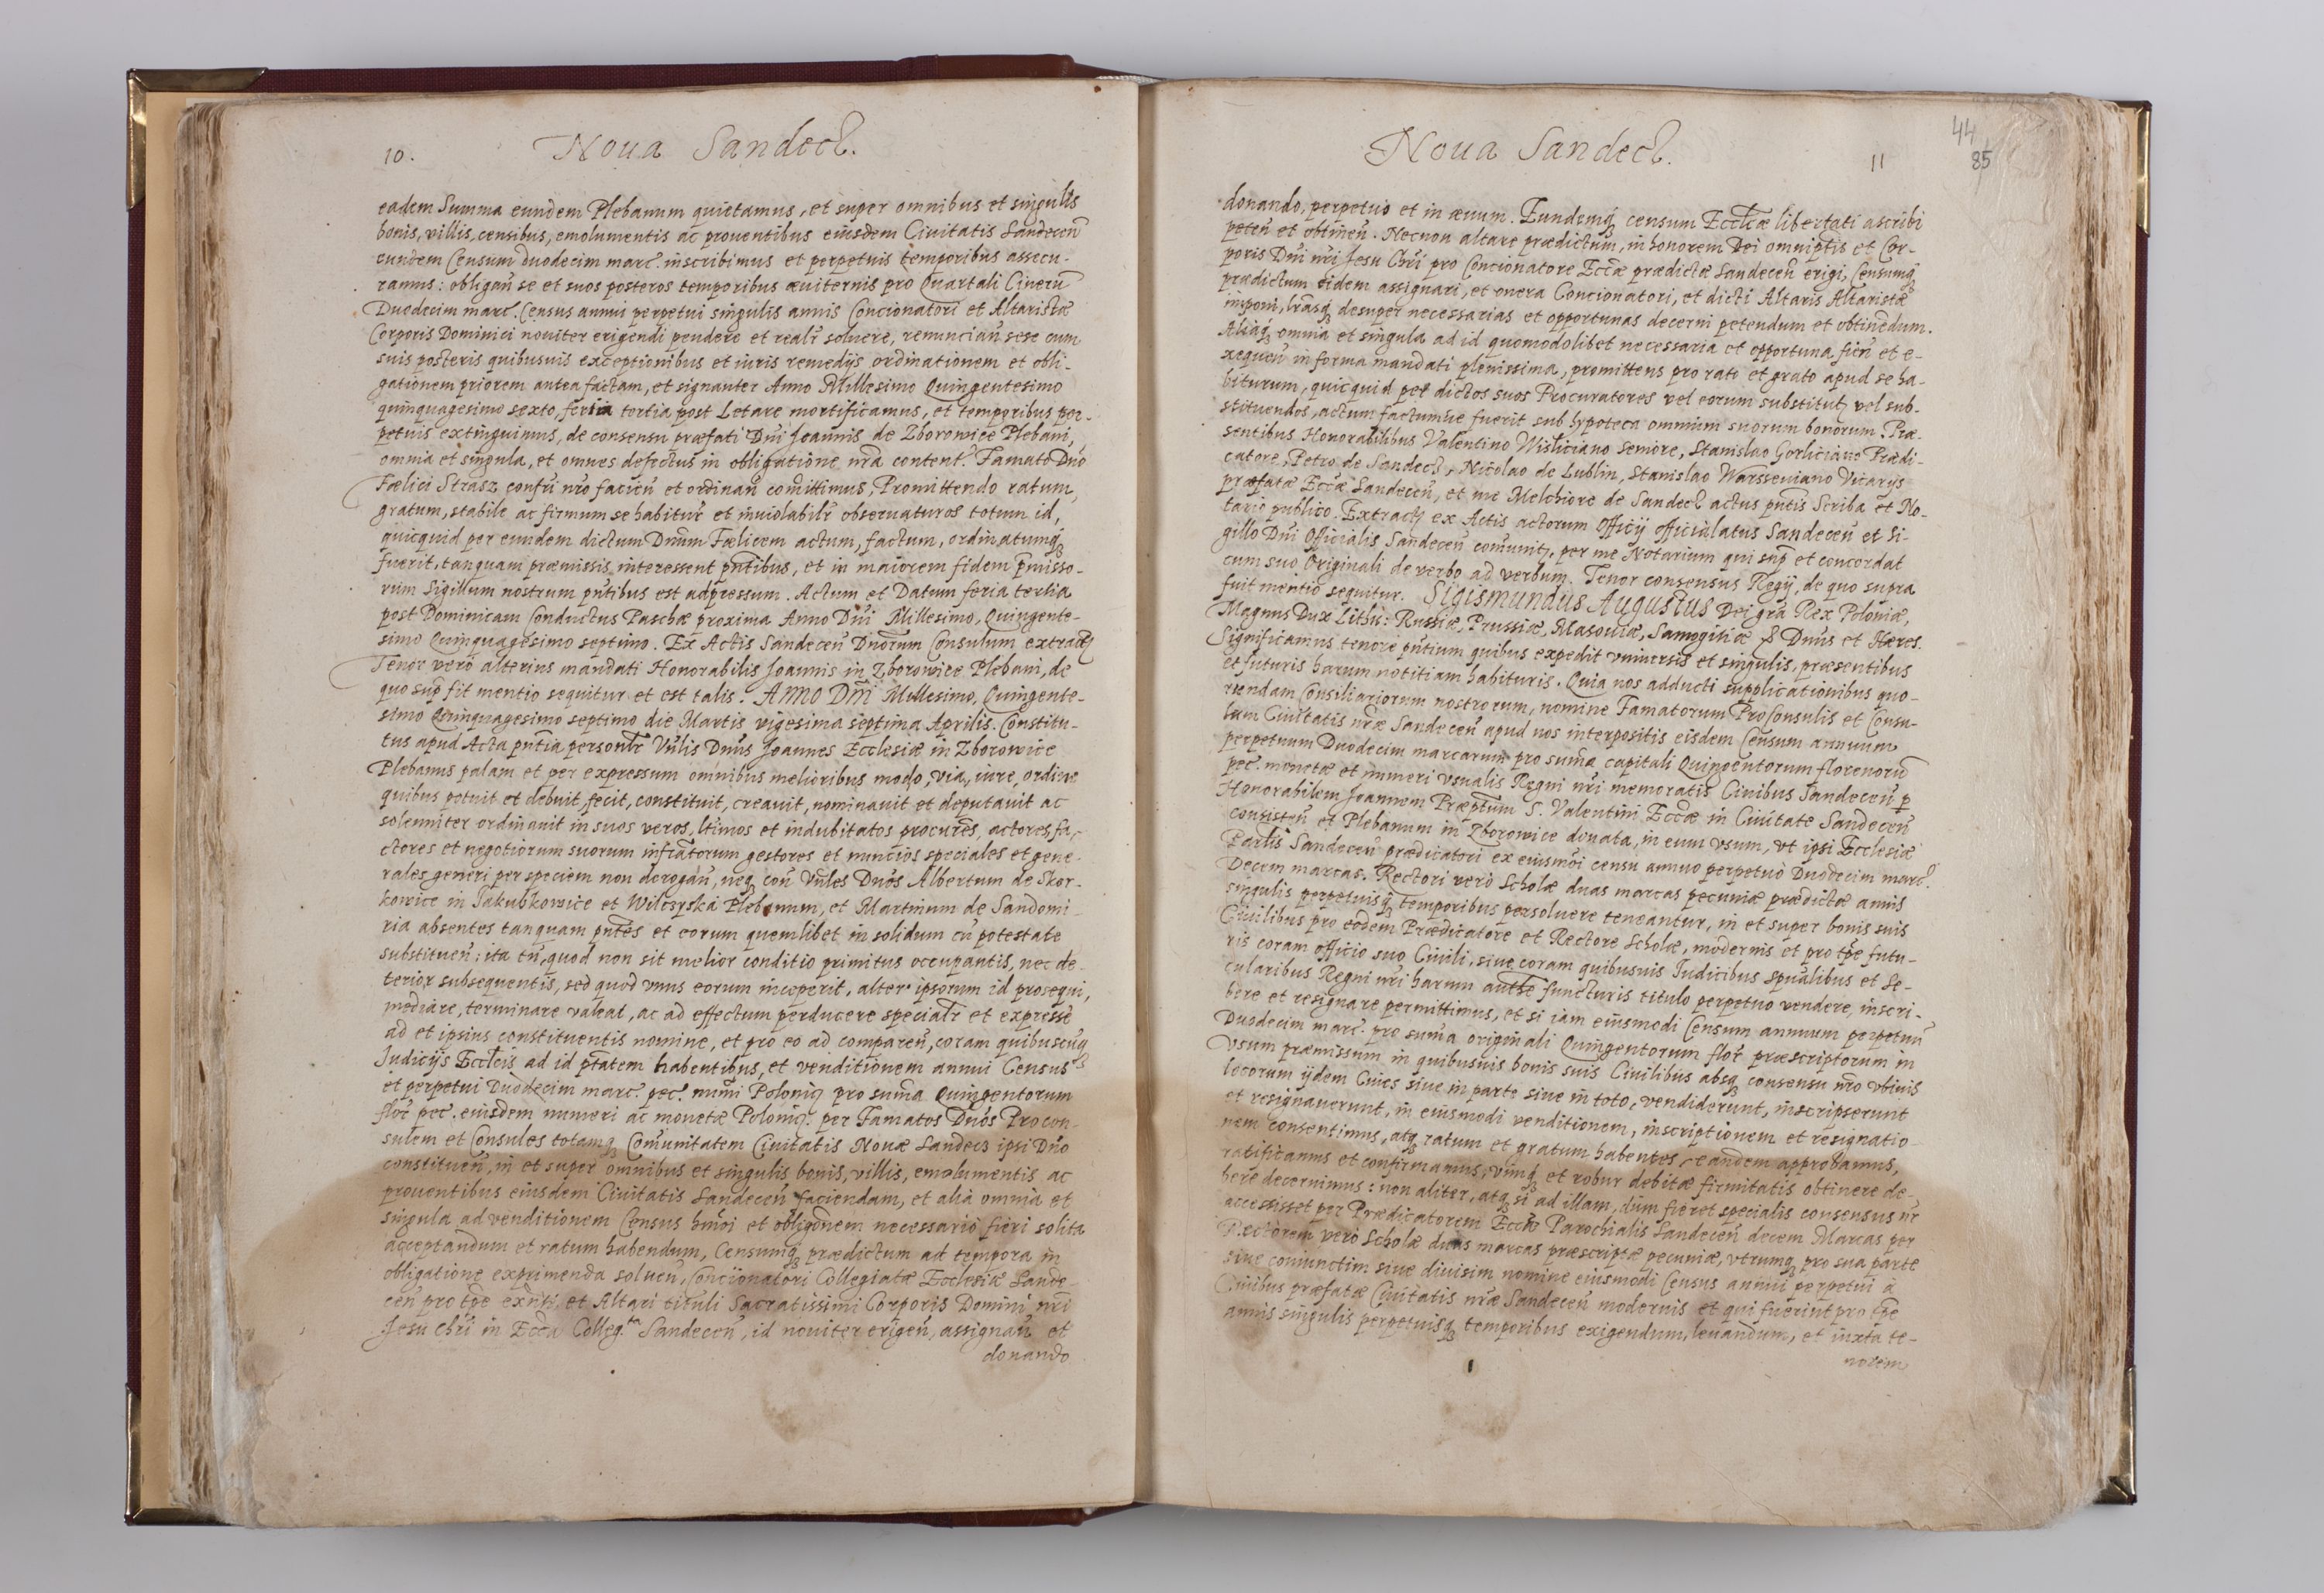 10.
Noua Sandecz.
eadem Summa eundem Plebanum quietamus, et super omnibus et singulis
bonis, villis, censibus, emolumentis ac prouentibus eiusdem Ciuitatis Sandecen̄
eundem Censum duodecim marc. inscribimus et perpetuis temporibus assecu-
ramus: obligan̄ se et suos posteros temporibus æuiternis pro Quartali Cinerū
Duodecim marc. Census annui perpetui singulis annis Concionatori et Altaristæ
Corporis Dominici nouiter erigendi pendere et realr̄ soluere, renuncian̄ sese cum
suis posteris quibusuis exceptionibus et iuris remedijs ordinationem et obli-
gationem priorem antea factam, et signanter Anno Millesimo Quingentesimo
quinquagesimo sexto, feria tertia post Letare mortificamus, et temporibus per-
petuis extinguimus, de consensu præfati Dn̄i Joannis de Zborowice Plebani,
omnia et singula, et omnes defectus in obligatione nr̄a content. Famato Dn̄o
Fœlici Strasz consu̅i nr̄o facien̄ et ordinan̄ comittimus, Promittendo ratum,
gratum, stabile ac firmum se habitur̄ et inuiolabilr̄ obseruaturos totum id,
quicquid per eundem dictum Dn̄um Fœlicem actum, factum, ordinatumq́ꝫ
fuerit, tanquam præmissis interessent pn̄tibus, et in maiorem fidem p̄misso-
rum Sigillum nostrum pn̄tibus est adpressum. Actum et Datum feria tertia
post Dominicam Conductus Paschæ proxima Anno Dn̄i Millesimo, Quingente-
simo Quinquagesimo septimo. Ex Actis Sandecen̄ Dnōrum Consulum extractꝫ
Tenor vero alterius mandati Honorabilis Joannis in Zborowice Plebani, de
quo sup̄ fit mentio sequitur et est talis. Anno Dn̄i Millesimo, Quingente-
simo Quinquagesimo septimo die Martis vigesima septima Aprilis. Constitu-
tus apud Acta pn̄tia personlr̄ Vn̄lis Dnūs Joannes Ecclesiæ in Zborowice
Plebanus palam et per expressum omnibus melioribus modo, via, iure, ordine
quibus potuit et debuit, fecit, constituit, creauit, nominauit et deputauit ac
solenniter ordinauit in suos veros, ltīmos et indubitatos procur̄es, actores, fa-
ctores et negotiorum suorum infrāt̄orum gestores et nuncios speciales et gene-
rales, generi per speciem non derogan̄, neq con̄ Vn̄les Dnōs Albertum de Skor-
kowice in Jakubkowice et Wilczyska Plebanum, et Martinum de Sandomi-
ria absentes tanquam pn̄tes et eorum quemlibet in solidum cū potestate
substituen̄; ita tn̄, quod non sit melior conditio primitus occupantis, nec de-
terior subsequentis, sed quod vnus eorum inceperit, alter ipsorum id prosequi,
mediare, terminare valeat, ac ad effectum perducere specialr̄ et expresse
ad et ipsius constituentis nomine, et pro eo ad comparen̄, coram quibuscūq
Iudicijs Eccl̄cis ad id ptātem habentibus, et venditionem annui Census
et perpetui Duodecim marc. pec. numi Polonicꝫ pro sum̄a Quingentorum
flor̄ pec. eiusdem numeri ac monetæ Polonicꝫ. per Famatos Dnōs Procon-
sulem et Consules totamqꝫ Com̄unitatem Ciuitatis Nouæ Sandecz ipsi Dn̄o
constituen̄, in et super omnibus et singulis bonis, villis, emolumentis ac
prouentibus eiusdem Ciuitatis Sandecen̄ faciendam, et alia omnia et
singula ad venditionem Census hm̄oi et obligōnem necessario fieri solita
acceptandum et ratum habendum, Censumq́ꝫ prædictum ad tempora in
obligatione exprimenda soluen̄, Concionatori Collegiatæ Ecclesiæ Sande-
cen̄ pro tp̄e exn̄ti, et Altari tituli Sacratissimi Corporis Domini nr̄i
Jesu Chr̄i in Eccl̄a Colleg.ta Sandecen̄, id nouiter erigen̄, assignan̄ et
donando
Noua Sandecz.
11
44
85
donando, perpetuo et in æuum. Eundemq́ꝫ censum Eccl̄icæ libertati ascribi
peten̄ et obtinen̄. Necnon altare prædictum, in honorem Dei omnip̄tis et Cor-
poris Dn̄i nr̄i Jesu Chr̄i pro Concionatore Eccl̄æ prædictæ Sandecen̄ erigi, Censumq́ꝫ
prædictum eidem assignari, et onera Concionatori, et dicti Altaris Altaristæ
imponi, lr̄asqꝫ desuper necessarias et opportunas decerni petendum et obtinēdum.
Aliaqꝫ omnia et singula ad id quomodolibet necessaria et opportuna fien̄ et e-
xequen̄ in forma mandati plenissima, promittens pro rato et grato apud se ha-
biturum, quicquid per dictos suos Procuratores vel eorum substitutꝫ vel sub-
stituendos, actum factumue fuerit sub hypoteca omnium suorum bonorum. Præ-
sentibus Honorabilibus Valentino Wisliciano seniore, Stanislao Gorliciano Prædi-
catore, Petro de Sandecz, Nicolao de Lublin, Stanislao Warsseuiano Vicarijs
præfatæ Eccl̄æ Sandecen̄, et me Melchiore de Sandecz actus pn̄tis Scriba et No-
tario publico. Extractꝫ ex Actis actorum Officij officialatus Sandecen̄ et Si-
gillo Dn̄i Officialis Sandecen̄ comunitꝫ, per me Notarium qui sup̄ et concordat
cum suo Originali de verbo ad verbum. Tenor consensus Regij, de quo supra
fuit mentio sequitur. Sigismundus Augustus Dei gr̄a Rex Poloniæ,
Magnus Dux Lithu: Russiæ, Prussiæ, Masouiæ, Samogitiæ & Dn̄us et Hæres.
Significamus tenore pn̄tium quibus expedit vniuersis et singulis, præsentibus
et futuris harum notitiam habituris. Quia nos adducti supplicationibus quo-
rundam Consiliariorum nostrorum, nomine Famatorum Proconsulis et Consu-
lum Ciuitatis nr̄æ Sandecen̄ apud nos interpositis eisdem Censum annuum
perpetuum Duodecim marcarum pro sum̄a capitali Quingentorum florenorū
pec. monetæ et numeri vsualis Regni nr̄i memoratis Ciuibus Sandecen̄ p
Honorabilem Joannem Præp̄tum S. Valentini Eccl̄æ in Ciuitate Sandecen̄
consisten̄ et Plebanum in Zborowice donata, in eum vsum, vt ipsi Ecclesiæ
Parl̄is Sandecen̄ prædicatori ex eiusm̄oi censu annuo perpetuò Duodecim marc.
Decem marcas. Rectori verò Scholæ duas marcas pecuniæ prædictæ annis
singulis perpetuisq́ꝫ temporibus persoluere teneantur, in et super bonis suis
Ciuilibus pro eodem Prædicatore et Rectore Scholæ, modernis et pro tp̄e futu-
ris coram officio suo Ciuili, siue coram quibusuis Iudicibus spūalibus et Se-
cularibus Regni nr̄i harum autht̄e functuris titulo perpetuo vendere, inscri-
bere et resignare permittimus, et si iam eiusmodi Censum annuum perpetuū
Duodecim marc. pro sum̄a originali Quingentorum flor̄ præscriptorum in
vsum præmissum in quibusuis bonis suis Ciuilibus absqꝫ consensu nr̄o vbiuis
locorum ijdem Ciues siue in parte siue in toto, vendiderunt, inscripserunt
et resignauerunt, in eiusmodi venditionem, inscriptionem et resignatio-
nem consentimus, atqꝫ ratum et gratum habentes, eandem approbamus,
ratificamus et confirmamus, vimq́ꝫ et robur debitæ firmitatis obtinere de-
bere decernimus: non aliter, atqꝫ si ad illam, dum fieret specialis consensus nr̄
accessisset per Prædicatorem Eccl̄æ Parochialis Sandecen̄ decem Marcas per
Rectorem verò Scholæ duas marcas præscriptæ pecuniæ, vtrumqꝫ pro sua parte
siue coniunctim siue diuisim nomine eiusmodi Census annui perpetui à
Ciuibus præfatæ Ciuitatis nr̄æ Sandecen̄ modernis et qui fuerint pro tp̄e
annis singulis perpetuisqꝫ temporibus exigendum, leuandum, et iuxta te-
norem